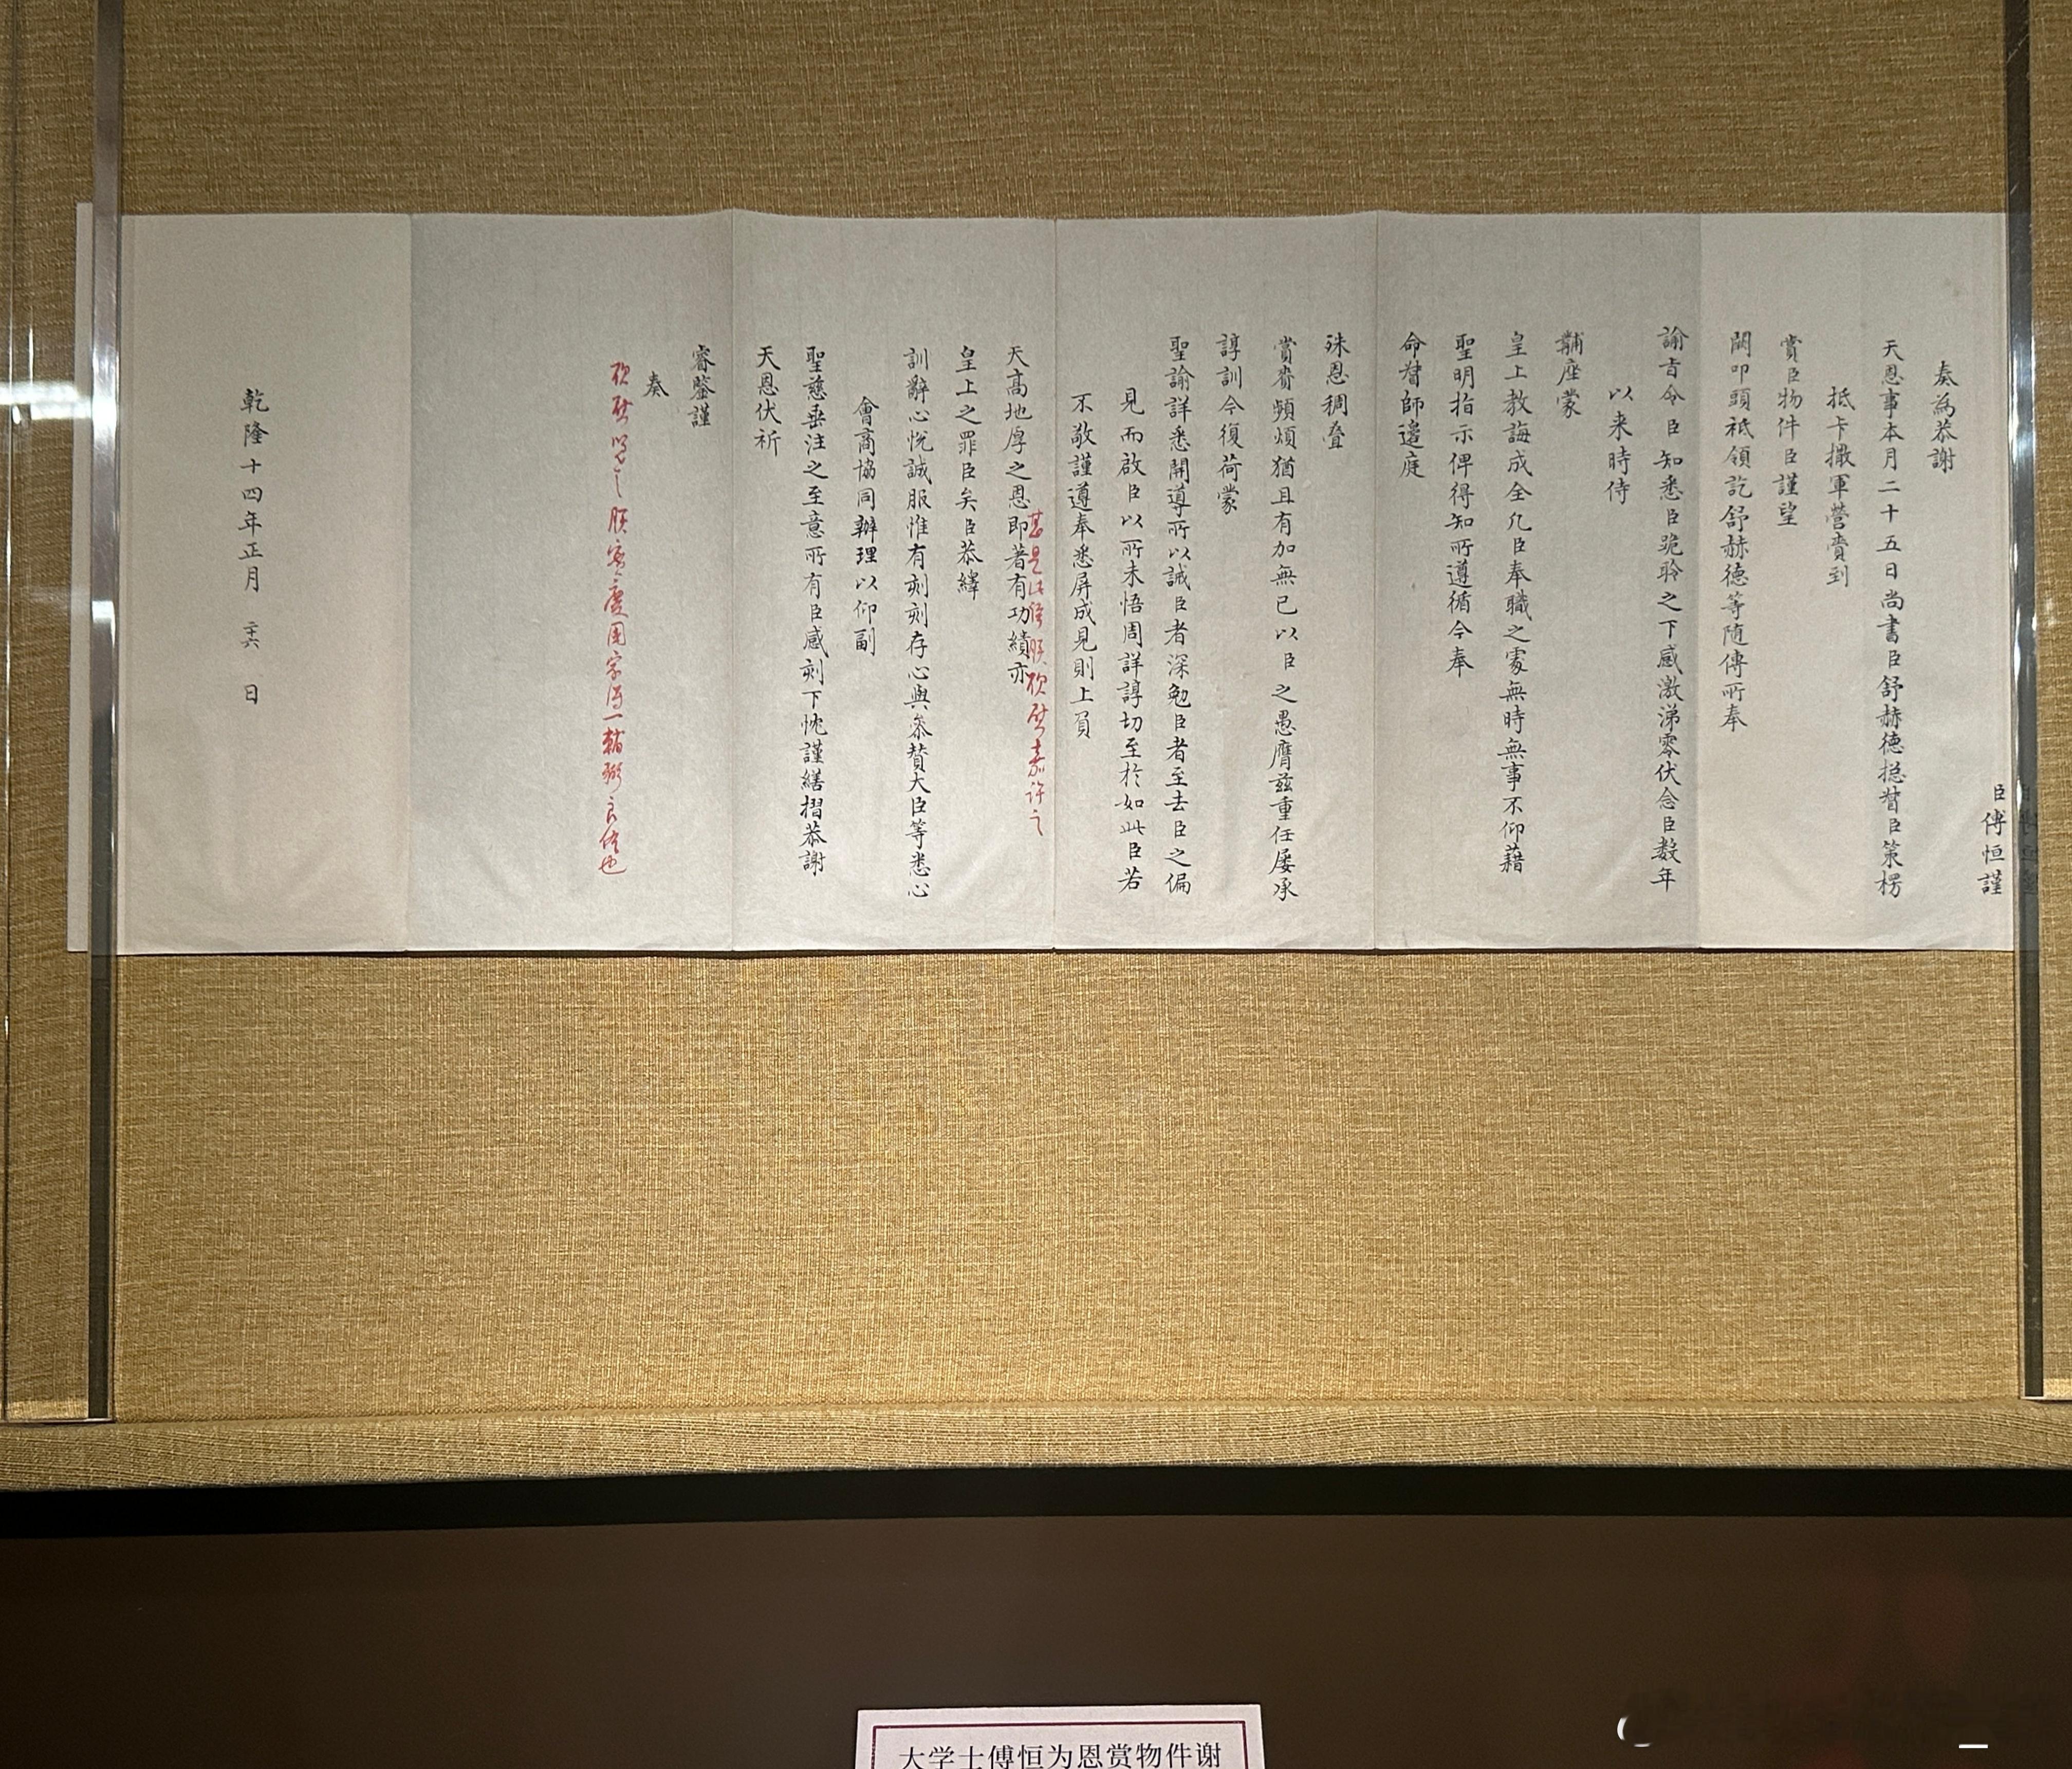 臣傅恒謹
奏為恭謝
天恩事本月二十五日尚書臣舒赫德總督臣策楞
抵卡撒軍營賫到
賞臣物件臣謹望
闕叩頭祗領訖舒赫德等隨傳所奉
諭旨令臣知悉臣跪聆之下感激涕零伏念臣數年
以来時侍
黼座蒙
皇上教誨成全凡臣奉職之處無時無事不仰藉
聖明指示俾得知所遵循今奉
命督師遠庭
殊恩稠叠
賞賚頻煩猶且有加無已以臣之愚膺兹重任屡承
諄訓今復荷蒙
聖諭詳悉開導所以誡臣者深勉臣者至去臣之偏
見而啟臣以所未悟周詳諄切至於如此臣若
不敬謹遵奉悉屏成見則上負
甚是此經朕欣慰嘉許之
天高地厚之恩即著有功績亦
皇上之罪臣矣臣恭繹
訓辭心悦誠服惟有刻刻存心與叅贊大臣等悉心
會商協同辦理以仰副
聖慈垂注之至意所有臣感刻下忱謹繕摺恭謝
天恩伏祈
睿鑒謹
奏
欣慰覽之朕實慶国家得一輔弼良佐也
乾隆十四年正月 二十六 日
大学士傅恒为恩赏物件谢